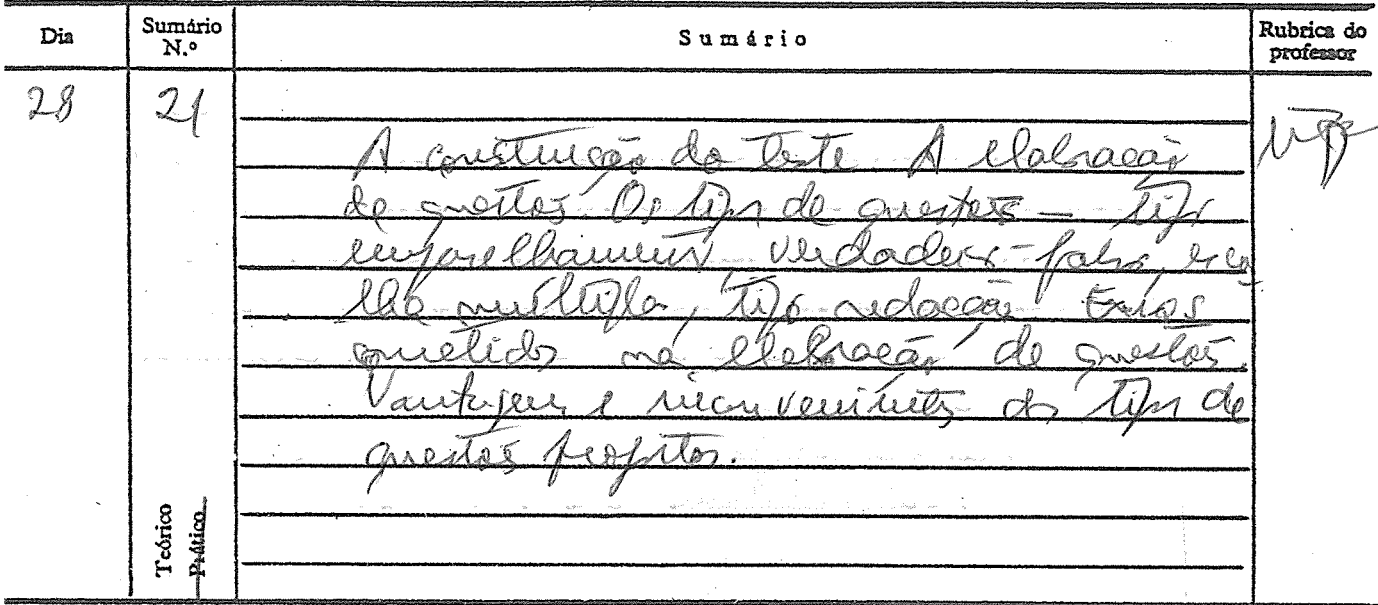 Dia
Sumário N.º
Sumário
Rubrica do professor
28
21
A construção do teste A elaboração
de questões Os tipos de questões – tipo
emparelhamento verdadeiro-falso, esco
lha múltipla, tipo redacção Erros
cometidos na elaboração de questões.
Vantagens e inconvenientes dos tipos de
questões propostos.
Teórico
Prático